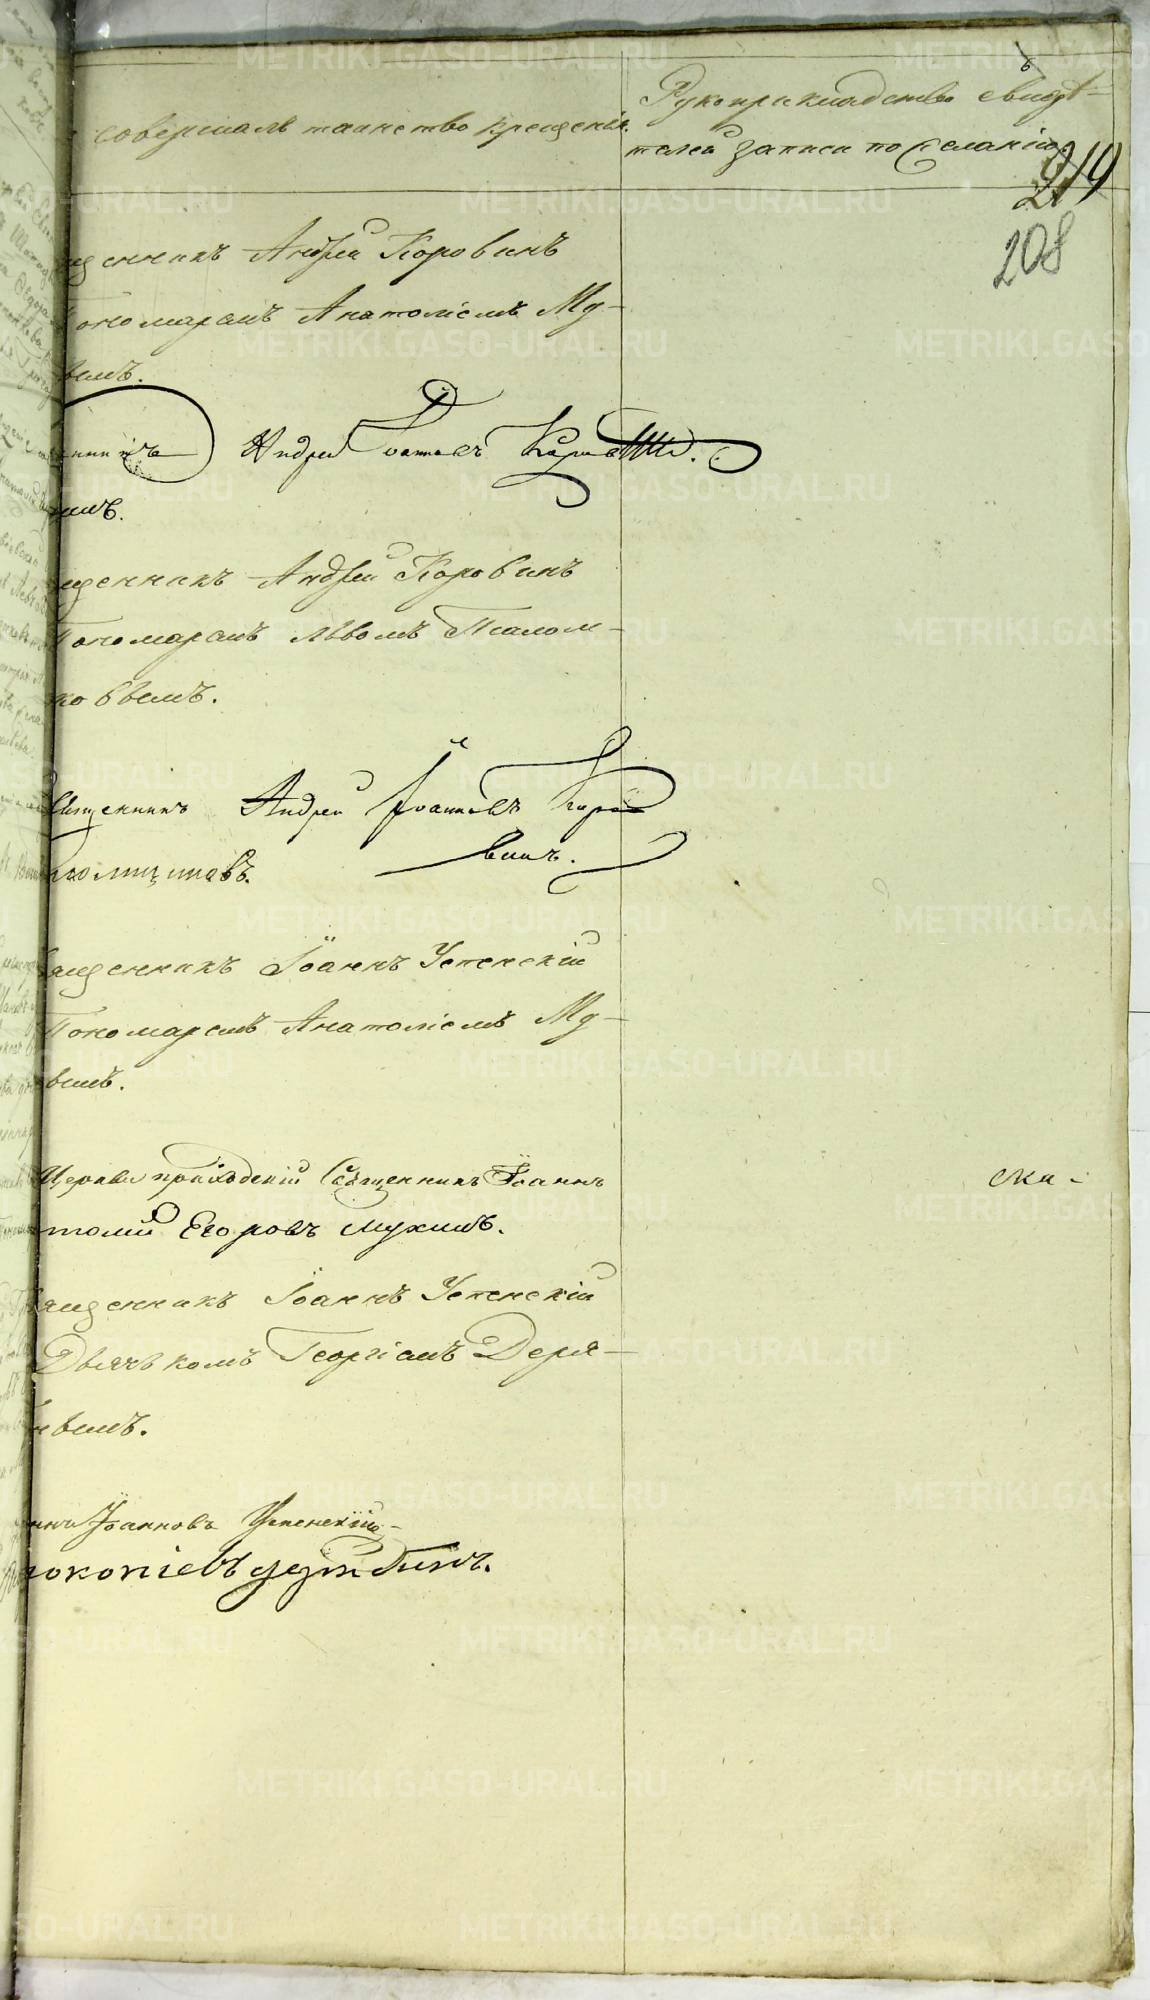 6
совершалъ таинство крещенія.
Рукоприкладство свидѣ-
телей записи по желанію.
219
208
щенникъ Андрей Коровинъ
Пономаремъ Анатоліемъ Му-
вымъ.
Андрей Іоанновъ
щенникъ Андрей Коровинъ
Пономаремъ Львомъ Псалом-
ковымъ.
Священникъ Андрей Іоанновъ Коро
винъ.
щенникъ Іоаннъ Успенскій
Пономаремъ Анатоліемъ Му-
вымъ.
Церкви приходскій Священникъ Іоаннъ
ска-
толій Егоровъ Мухинъ.
щенникъ Іоаннъ Успенскій
Дьячькомъ Георгіемъ Деря-
вымъ.
Іоанновъ Успенскій
рокопіевъ
METRIKI.GASO-URAL.RU